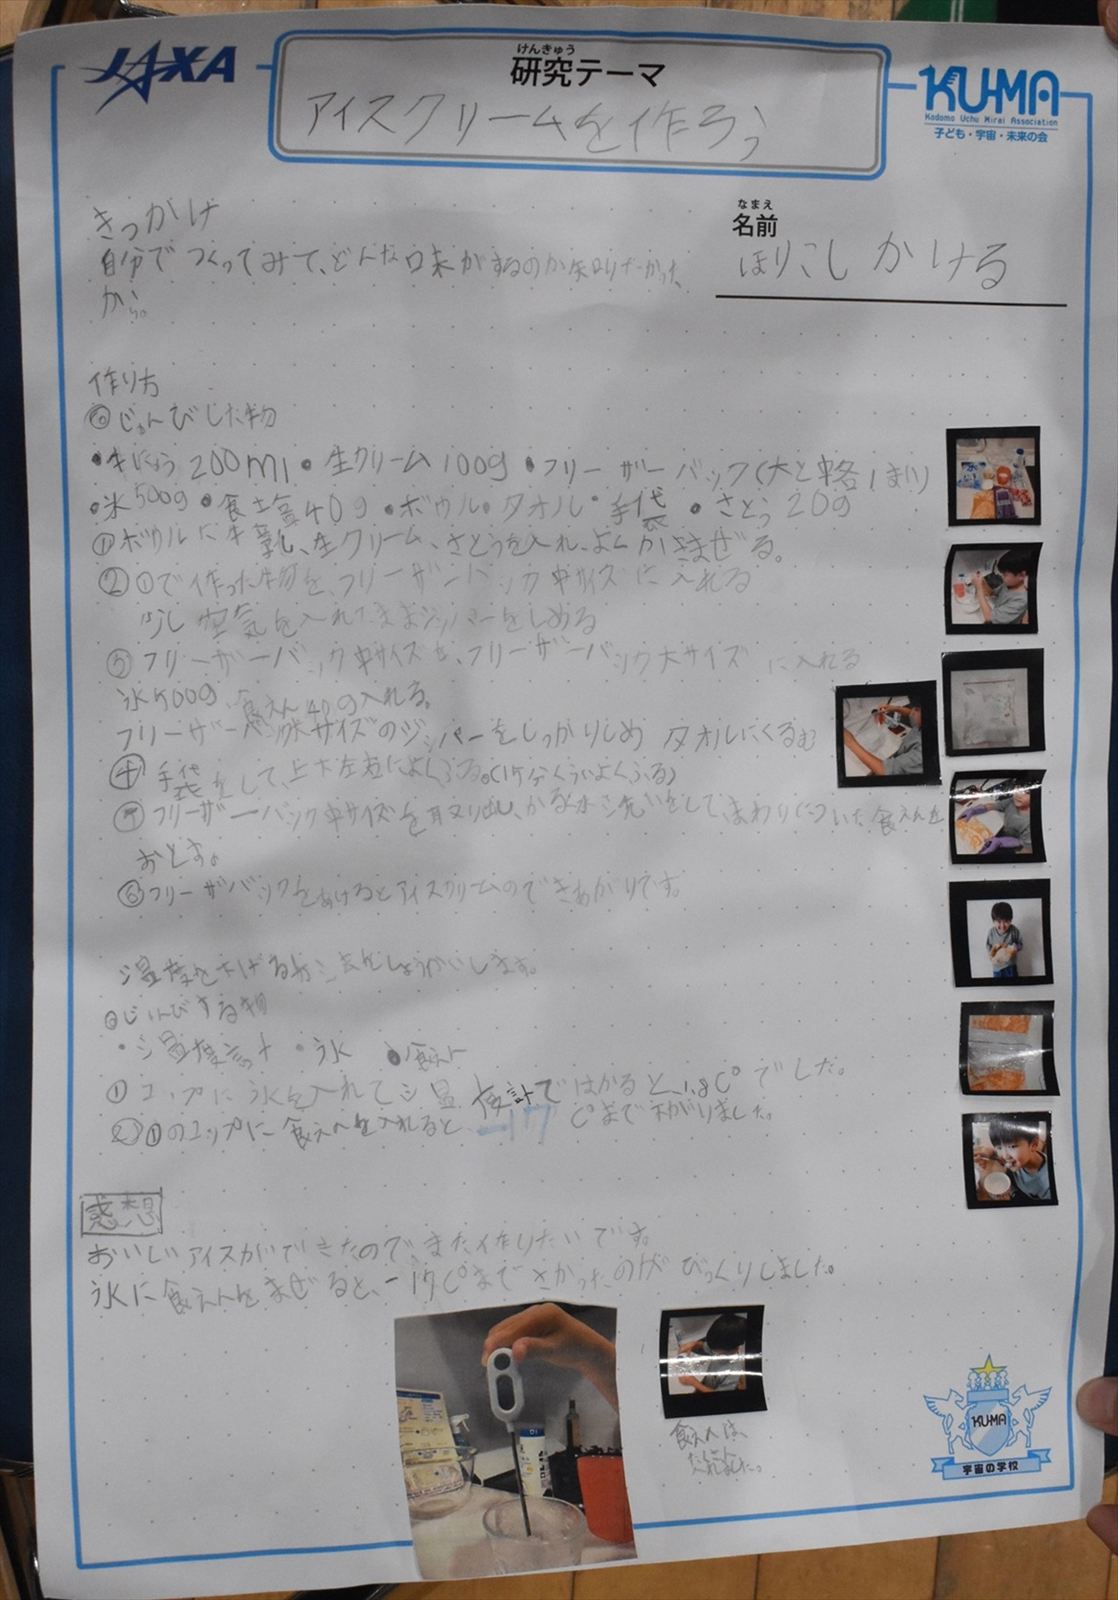 JAXA
けんきゅう
研究テーマ
アイスクリームを作ろう
KU-MA
Kodomo Uchu Mirai Association
子ども・宇宙・未来の会
きっかけ
なまえ
名前
ほりこし かける
自分でつくってみて、どんな味がするのか知りたかった
から。
作り方
◎じゅんびした物
・牛にゅう 200ml・生クリーム 100g・フリーザーバック(大と中各1まい)
・氷500g・食塩40g・ボウル・タオル・手袋・さとう20g
①ボウルに牛乳、生クリーム、さとうを入れ、よくかきまぜる。
②①で作った物を、フリーザーバック中サイズに入れる
少し空気を入れたままジッパーをしめる
③フリーザーバック中サイズを、フリーザーバック大サイズに入れる
氷500g、食えん40g入れる。
フリーザーバック大サイズのジッパーをしっかりしめタオルにくるむ
④手袋をして、上下左右によくふる。
⑤フリーザーバック中サイズを取り出し、かるく水洗いをして、まわりについた食えんを
おとす。
⑥フリーザバックをあけるとアイスクリームのできあがりです。
温度を下げる方法をしょうかいします。
◎じゅんびする物
・温度計 ・氷 ・食えん
①コップに氷を入れて温度計ではかると、-1.8C°でした。
②①のコップに食えんを入れると、-17C°まで下がりました。
感想
おいしいアイスができたので、また作りたいです。
氷に食えんをまぜると、-17C°までさがったのがびっくりしました。
食えんは、
KU-MA
宇宙の学校